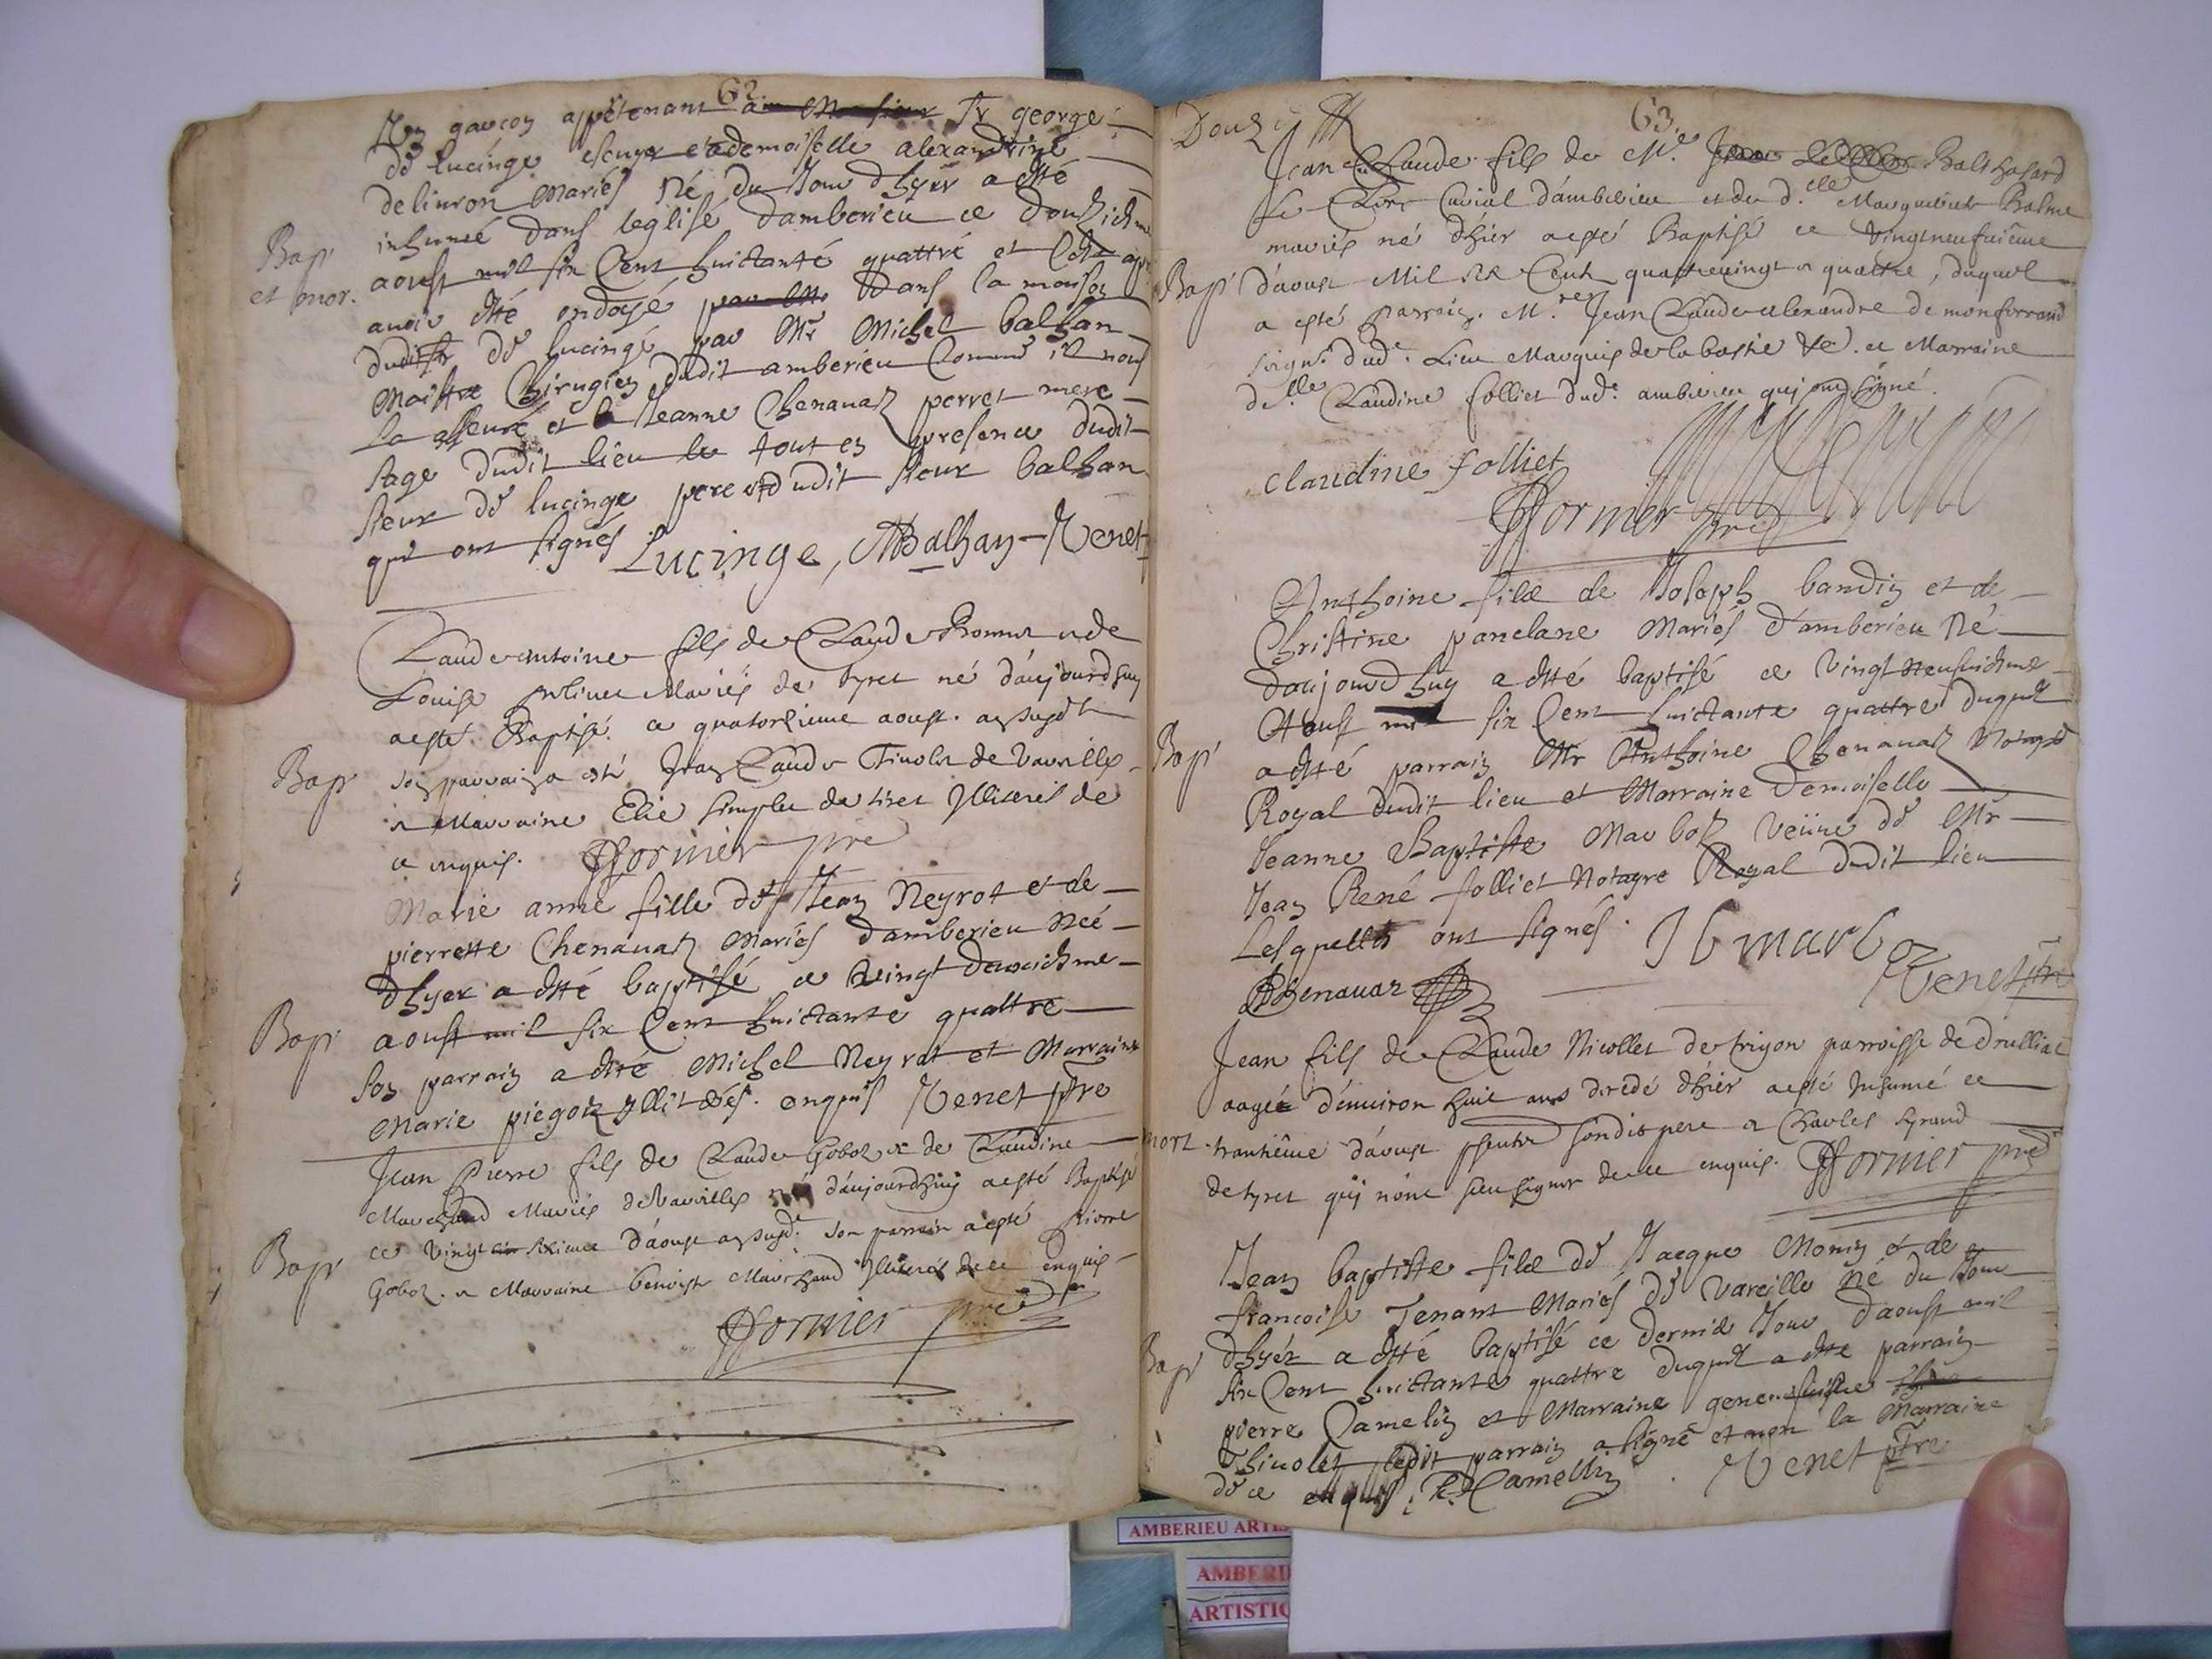 62
Un garçon appartenant a Mr george
de lucinge escuyer et ademoiselle alexandrine
de liuron mariés né du Jour dhyer a esté
inhumé dans leglise damberieu ce douziesme
Bap
et mor.
aoust mil six Cent huictante quattre et Cela apr
auoir esté ondoyé dans la maison
dudit Sr de lucinge par Mr Michel balhan
Maistre Chirugien dudit amberieu Comme il nous
la asseuré et Jeanne Chenauaz perret mere
sage dudit lieu tout en presence dudit
sieur de lucinge pere et dudit sieur balhan
qui ont signés Lucinge, MBalhan Venet
Claude antoine fils de Claude Bonnet et de
Louise mariés de tyret né daujourdhuy
a esté Baptisé ce quatorzieme aoust
Bap
son parrain a esté Jean Claude Tinolet de Vareilles
et Marraine Elie simplee de tiret Illiterés de
ce enquis. Fornier pre
Marie anne fille de Jean Neyrot et de
pierrette Chenauaz mariés damberieu née
dhyer a esté baptisé ce vingt deuxiesme
Bap
aoust mil six Cent huictante quattre
son parrain a esté Michel Neyrot et Marraine
Marie piegoz yllitérés. enquis Venet ptre
Jean Pierre fils de Claude Goboz et de Claudine
Marchand Mariés de Vareilles né daujourdhuy a esté Baptisé
ce vingt sixieme d'aoust son parrain a esté pierre
Bap
Goboz. et Marraine benoiste Marchand Illiterés de ce enquis
Fornier pre
63.
Jean Claude fils de Mr. Balthasard
Le Clerc Curial d'amberieu et de d.elle Marguerite Balme
mariés né d'hier a esté Baptisé ce vingtneufuième
Bap
d'aoust Mil six Cent quatrevingt et quattre, duquel
a esté parrain. M.re Jean Claude alexandre de monferrand
seign.r dud.t Lieu Marquis de la bastie &c. et Marraine
d.elle Claudine folliet dud.t amberieu qui ont signé.
claudine folliet
Fornier pre
Anthoine filz de Joseph baudin et de
Christine panelane Mariés d'amberieu né
daujourdhuy a esté baptisé ce vingt neufuiesme
Aoust six Cent huictante quattre duquel
Bap
a esté parrain Mr Anthoine Chenauaz Notayre
Royal dudit lieu et Marraine Demoiselle
Jeanne Baptiste Marboz veüue de Mr
Jean René folliet Notayre Royal dudit lieu
Lesquelles ont signés. J b marboz
Chenauaz
Venet ptre
Jean fils de Claude Nicollet de trigon parroisse de drulliat
aagée d'enuiron huit ans decedé d'hier a esté Inhumé ce
mort
trantième d'aoust son dit pere et Charles
de tyret quj n'ont sceu signer de ce enquis. Fornier pre
Jean baptiste filz de Jacque Monin et de
francoise Tenant Mariés de Vareille né du Jour
dhyér a esté baptisé ce dernié Jour d'aoust mil
Bap
six Cent huictante quattre duquel a esté parrain
pierre Camelin et Marraine
Thinolet ledit parrain a signé et non la Marraine
de ce enquis. P. Camellin Venet ptre
AMBERIEU